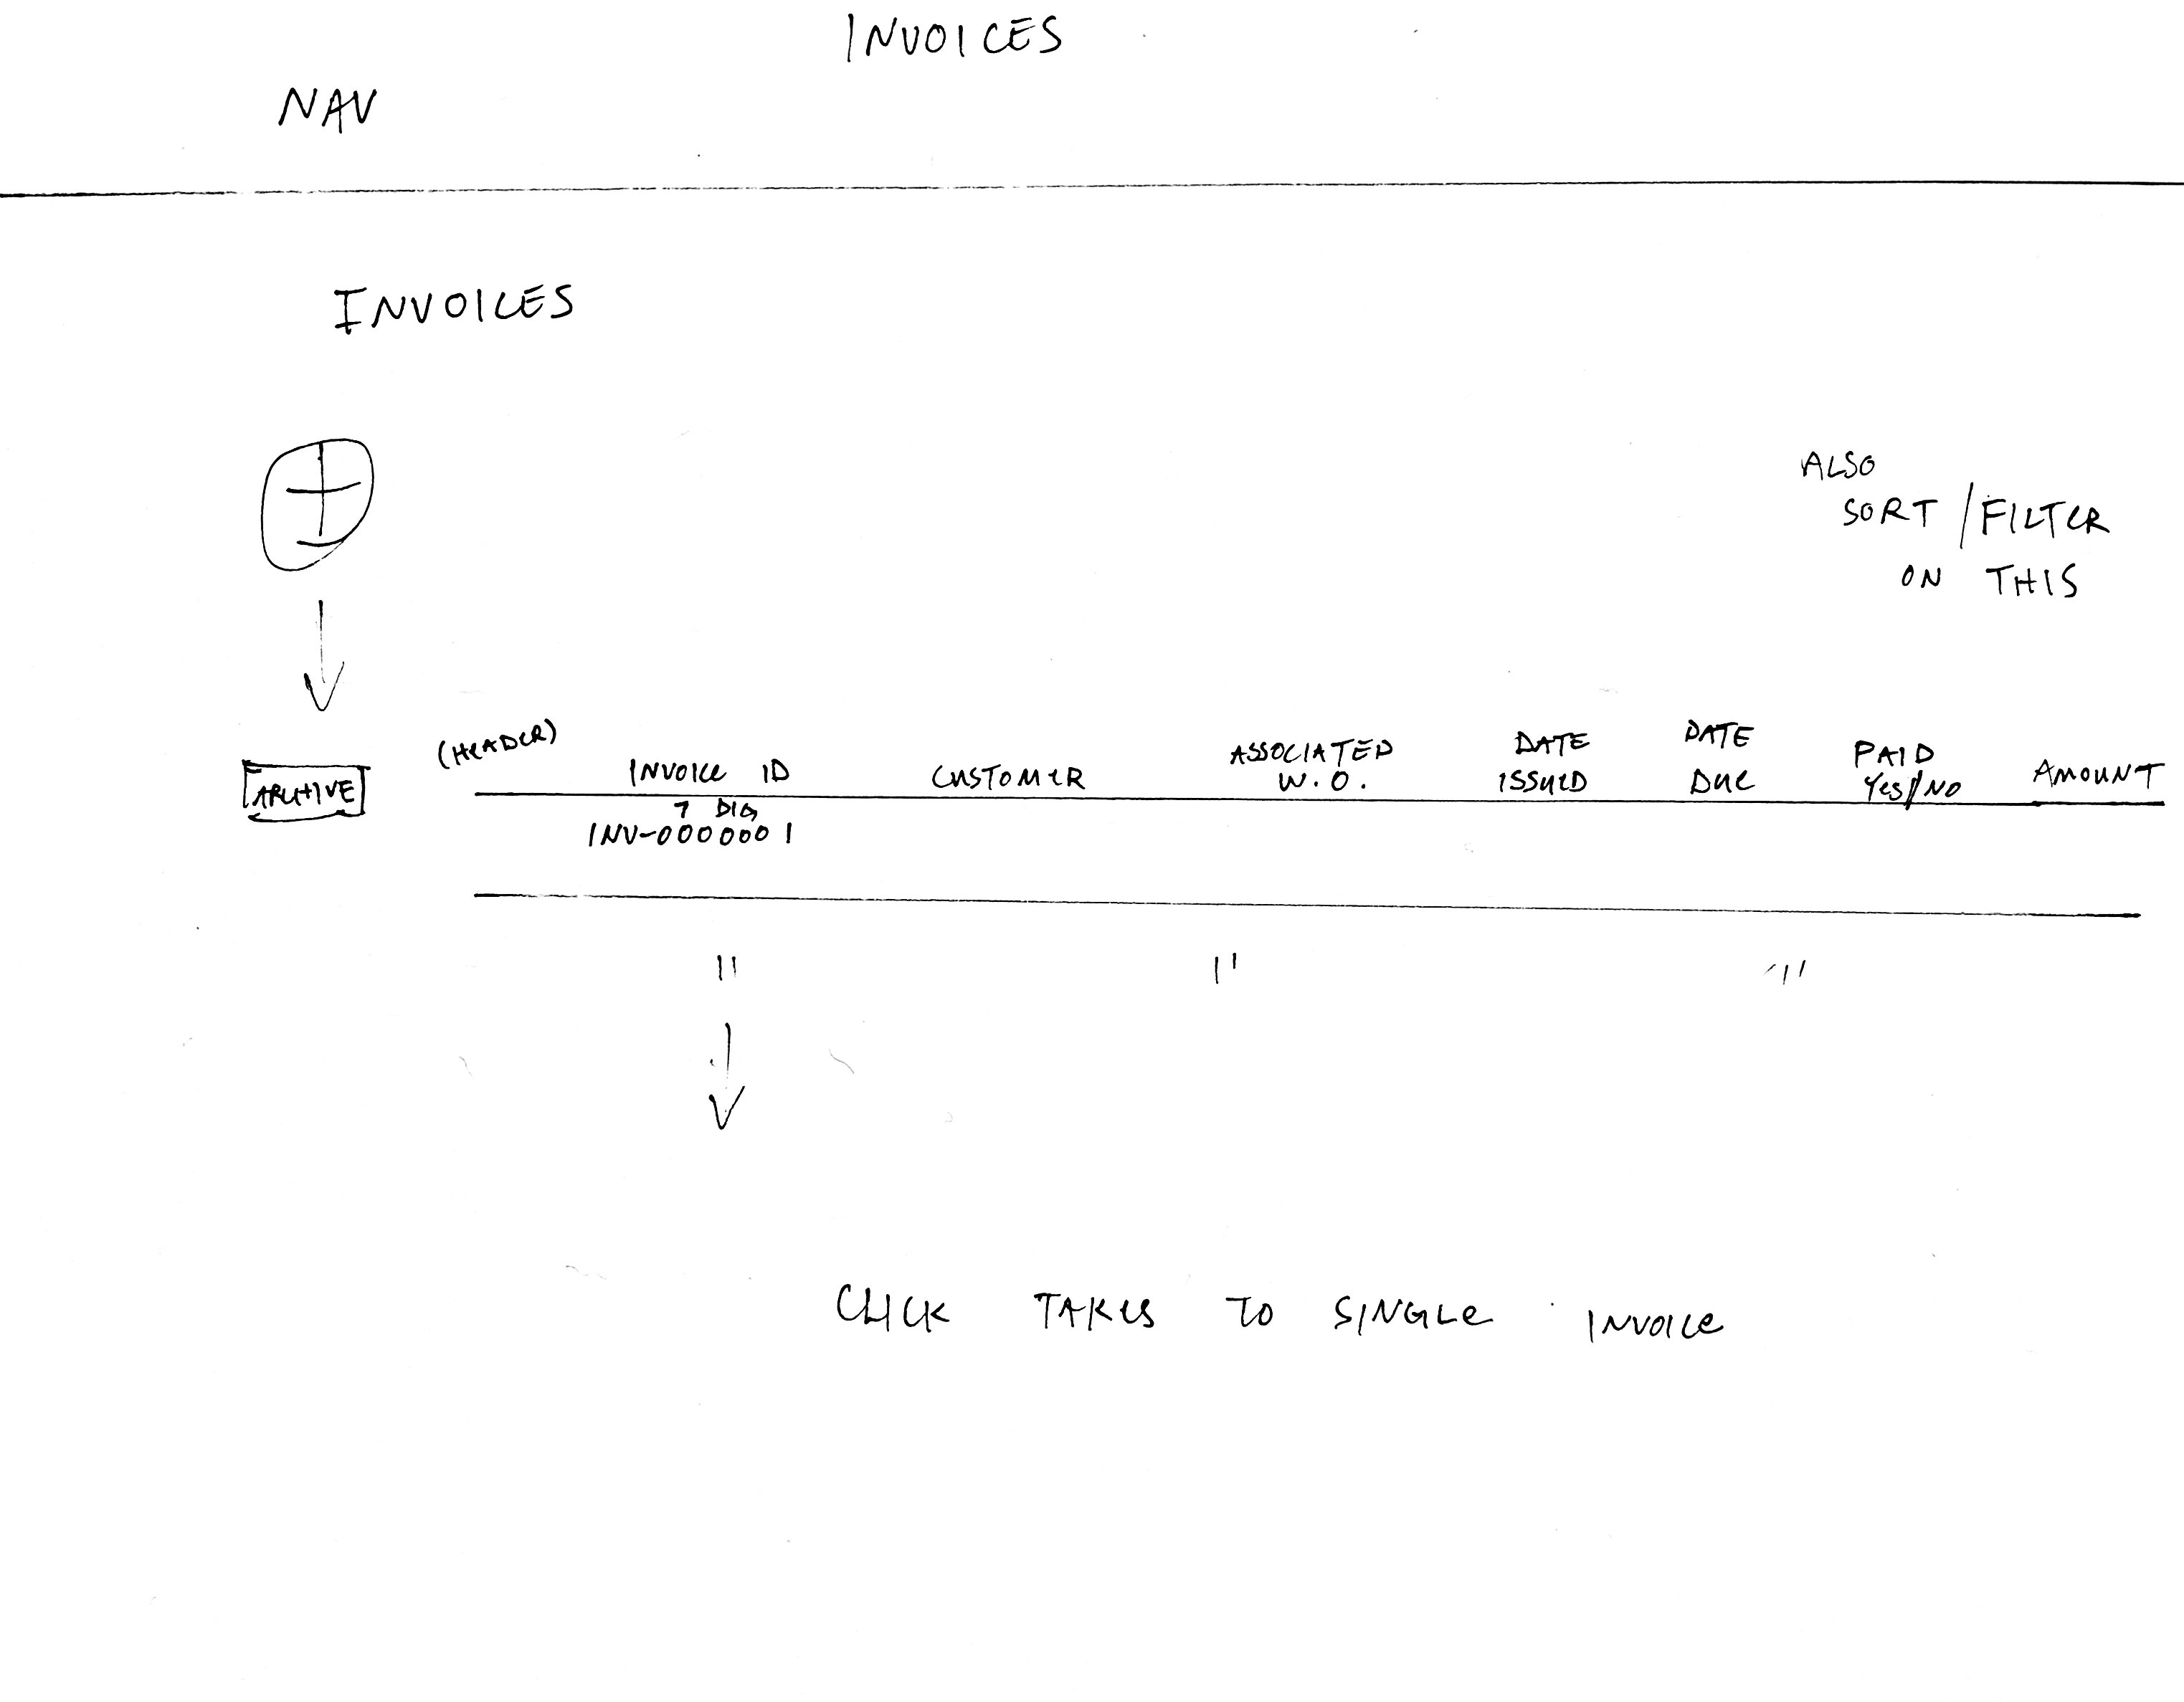 INVOICES
NAV
INVOICES
ALSO
SORT / FILTER
ON THIS
ARCHIVE
(HEADER)
INVOICE ID
CUSTOMER
ASSOCIATED
W.O.
DATE
ISSUED
DATE
DUE
PAID
Yes//NO
AMOUNT
7 DIG
INV-0000001
" " "
CLICK TAKES TO SINGLE INVOICE